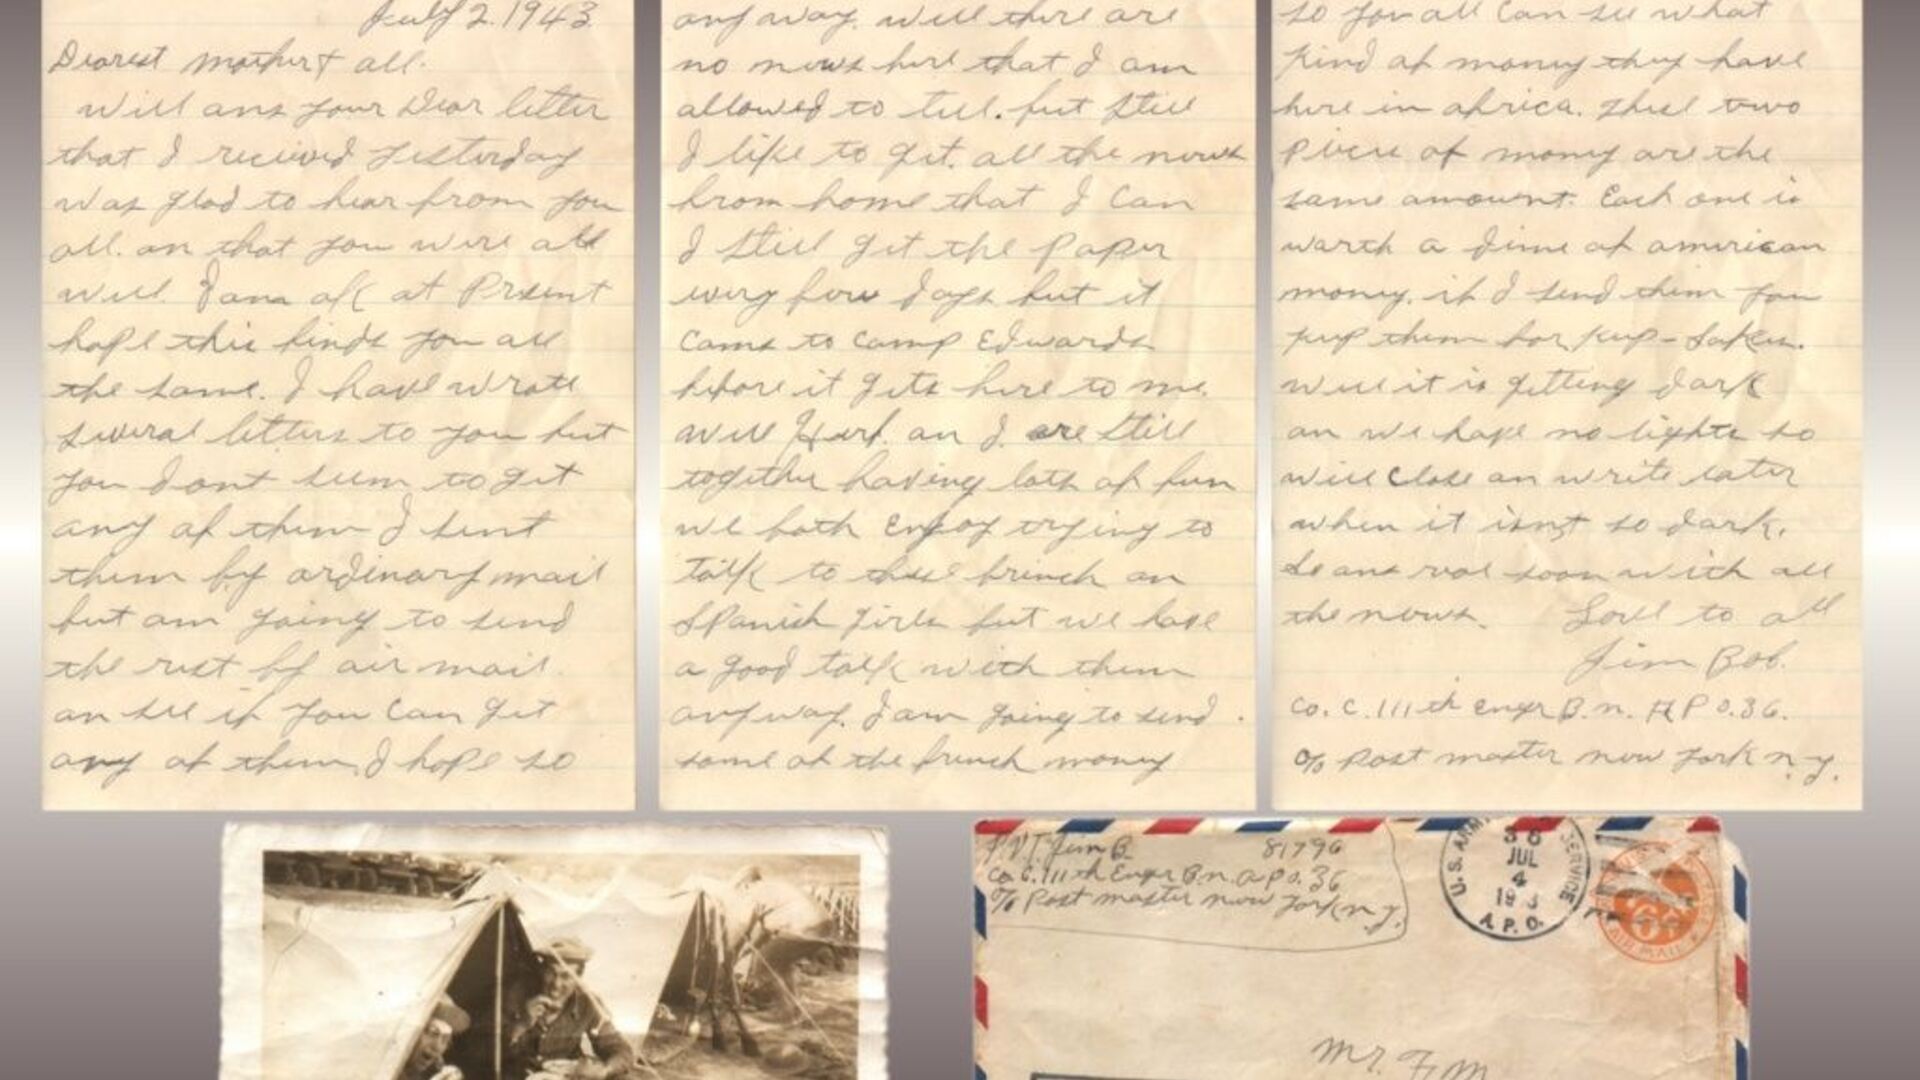 July 2. 1943
Dearest mother & all.
Will ans your Dear letter
that I recieved yesterday
was glad to hear from you
all. an that you were all
well. I am ok at Present
hope this finds you all
the same. I have wrote
several letters to you but
you dont seem to get
any of them I sent
them by ordinary mail
but am going to send
the rest by air mail.
an see if you can get
any of them, I hope so
anyway. well there are
no news here that I am
allowed to tell. but still
I like to get. all the news
from home that I can
I still get the Paper
every few days but it
came to camp Edwards
before it gets here to me.
well Herb. an I. are still
together having lots of fun
we both enjoy trying to
talk to these french an
Spanish girls but we have
a good talk with them
anyway. I am going to send
some of the french money
so you all can see what
kind of money they have
here in africa. these two
piece of money are the
same amount. Each one is
warth a dime of american
money. if I send them you
keep them for keep-sakes.
well it is getting dark
an we have no lights so
will close an write later
when it isnt so dark.
So ans real soon with all
the news. Love to all
Jim Bob.
Co. C. 111th Engr B.n. A P O. 36.
c/o Post master new york n.y.
P.V.T. Jim B. 81796
Co C. 111th Engr B.n. a.p.o. 36
c/o Post master new york n.y.
U.S. ARMY SERVICE
JUL
4
A.P.O.
6¢
AIR MAIL
Mr. F. M.